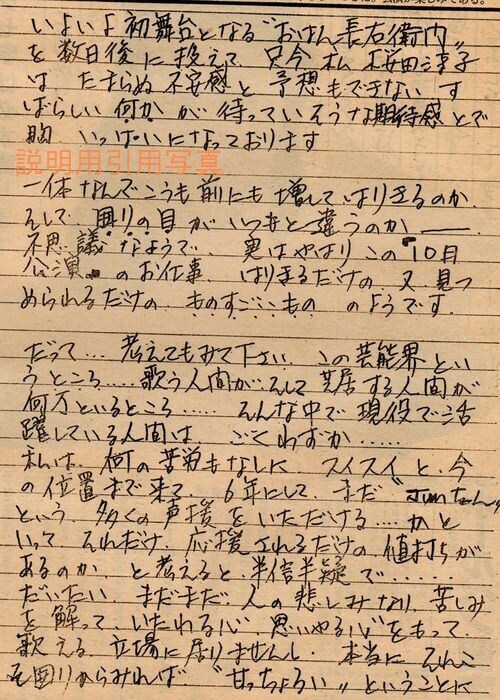 いよいよ初舞台となる“おはん長右衛門”
を数日後に控えて、只今私桜田淳子
は、たまらぬ不安感と予想もできないす
ばらしい何かが待っていそうな期待感とで
胸いっぱいになっております
説明用引用写真
一体なんでこうも前にも増してはりきるのか、
そして、囲りの目がいつもと違うのか――
不思議なようで、実はやはりこの10月
公演のお仕事、はりきるだけの、又、見つ
められるだけの、ものすごいもの、のようです。
だって…考えてもみて下さい、この芸能界とい
うところ……歌う人間が、そして芝居する人間が
何万といるところ……そんな中で現役で活
躍している人間は、ごくわずか……
私は、何の苦労もなしに、スイスイと、今
の位置まで来て、6年にして、まだ“Junちゃん”
という、多くの声援をいただける…かと
いって、それだけ、応援されるだけの値打ちが
あるのか、と考えると、半信半疑で……
だいたい、まだまだ、人の悲しみなり、苦しみ
を解って、いたわる心、思いやる心をもって
歌える立場に居りませんし、本当に、それこ
そ囲りからみれば“甘っちょろい”ということに